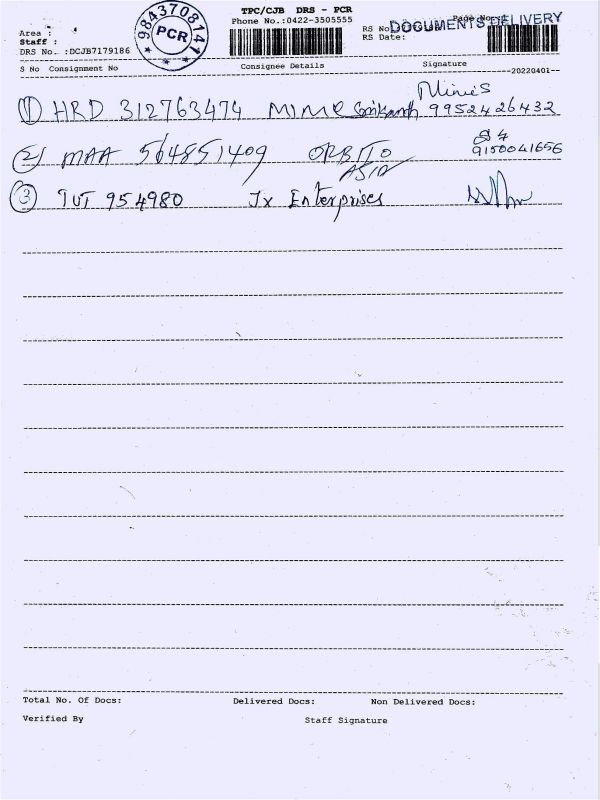 TPC/CJB DRS - PCR
Phone No.:0422-3505555
9843708141
PCR
DOCUMENTS DELIVERY
Area :
Staff :
DRS No. :DCJB7179186
RS No
RS Date:
S No Consignment No Consignee Details Signature
20220401
① HRD 312763474 MIME 9952426432
② MAA 564851409 ORBITO ASIA 9150041656
③ TUT 954980 Jx Enterprises
Total No. Of Docs: Delivered Docs: Non Delivered Docs:
Verified By Staff Signature